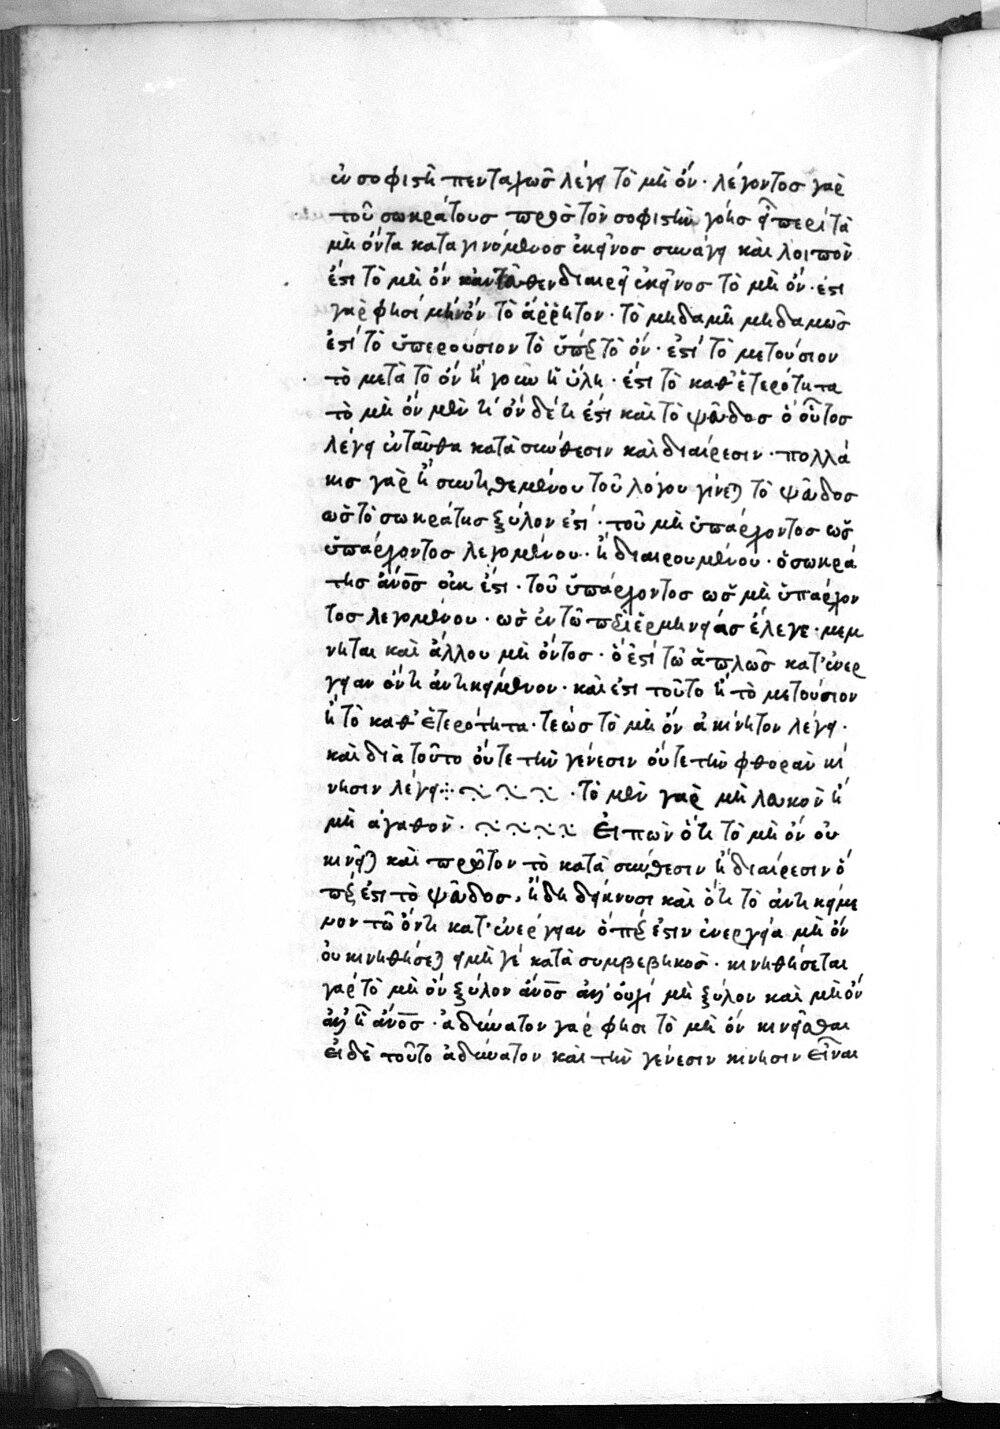 ἐν σοφιστῆ πενταχῶς λέγει τὸ μὴ ὄν· λέγοντος γὰρ
τοῦ σωκράτους πρὸς τὸν σοφιστὴν γόης εἶ περὶ τὰ
μὴ ὄντα καταγινόμενος ἐκεῖνος συνάγει καὶ λοιπὸν
ἔστι τὸ μὴ ὂν κἀνταῦθεν διαιρεῖ ἐκεῖνος τὸ μὴ ὄν· ἔστι
γάρ φησί μὴ ὂν τὸ ἄρρητον· τὸ μηδαμῆ μηδαμῶς
ἐστὶ τὸ ὑπερούσιον τὸ ὑπὲρ τὸ ὄν· ἐστὶ τὸ μετούσιον
τὸ μετὰ τὸ ὂν ἤγουν ἡ ὕλη· ἔστι τὸ καθ' ἑτερότητα
τὸ μὴ ὂν μέν τί ὂν δέ τι ἔστι καὶ τὸ ψεῦδος ὁ οὗτος
λέγει ἐνταῦθα κατὰ σύνθεσιν καὶ διαίρεσιν· πολλά
κις γὰρ ἢ συντιθεμένου τοῦ λόγου γίνεται τὸ ψεῦδος
ὡς τὸ σωκράτης ξύλον ἐστί· τοῦ μὴ ὑπάρχοντος ὡς
ὑπάρχοντος λεγομένου· ἢ διαιρουμένου· ὁ σωκρά
της ἄνος οὐκ ἔστι· τοῦ ὑπάρχοντος ὡς μὴ ὑπάρχον
τος λεγομένου· ὡς ἐν τῶ περὶ ἑρμηνείας ἔλεγε· μέμ
νηται καὶ ἄλλου μὴ ὄντος· ὅ ἐστί τῶ ἁπλῶς κατ' ἐνέρ
γειαν ὄντι ἀντικείμενον· καὶ ἔστι τοῦτο ἢ τὸ μετούσιον
ἢ τὸ καθ' ἑτερότητα· τέως τὸ μὴ ὂν ἀκίνητον λέγει·
καὶ διὰ τοῦτο οὔτε τὴν γένεσιν οὔτε τὴν φθορὰν κί
νησιν λέγει· τὸ μὲν γὰρ μὴ λευκὸν ἢ
μὴ ἀγαθὸν· Εἰπὼν ὅτι τὸ μὴ ὂν οὐ
κινεῖται καὶ πρῶτον τὸ κατὰ σύνθεσιν ἢ διαίρεσιν ὅ
περ ἐστὶ τὸ ψεῦδος, ἤδη δείκνυσι καὶ ὅτι τὸ ἀντικείμε
νον τῶ ὄντι κατ' ἐνέργειαν ὅπερ ἐστὶν ἐνεργεία μὴ ὂν
οὐ κινηθήσεται εἰ μή γε κατὰ συμβεβηκὸς· κινηθήσεται
γὰρ τὸ μὴ ὂν ξύλον ἄνος ἀλλ' οὐχί μὴ ξύλον καὶ μὴ ὂν
ἀλλ' ἢ ἄνος· ἀδύνατον γάρ φησι τὸ μὴ ὂν κινεῖσθαι
εἰ δὲ τοῦτο ἀδύνατον καὶ τὴν γένεσιν κίνησιν εἶναι